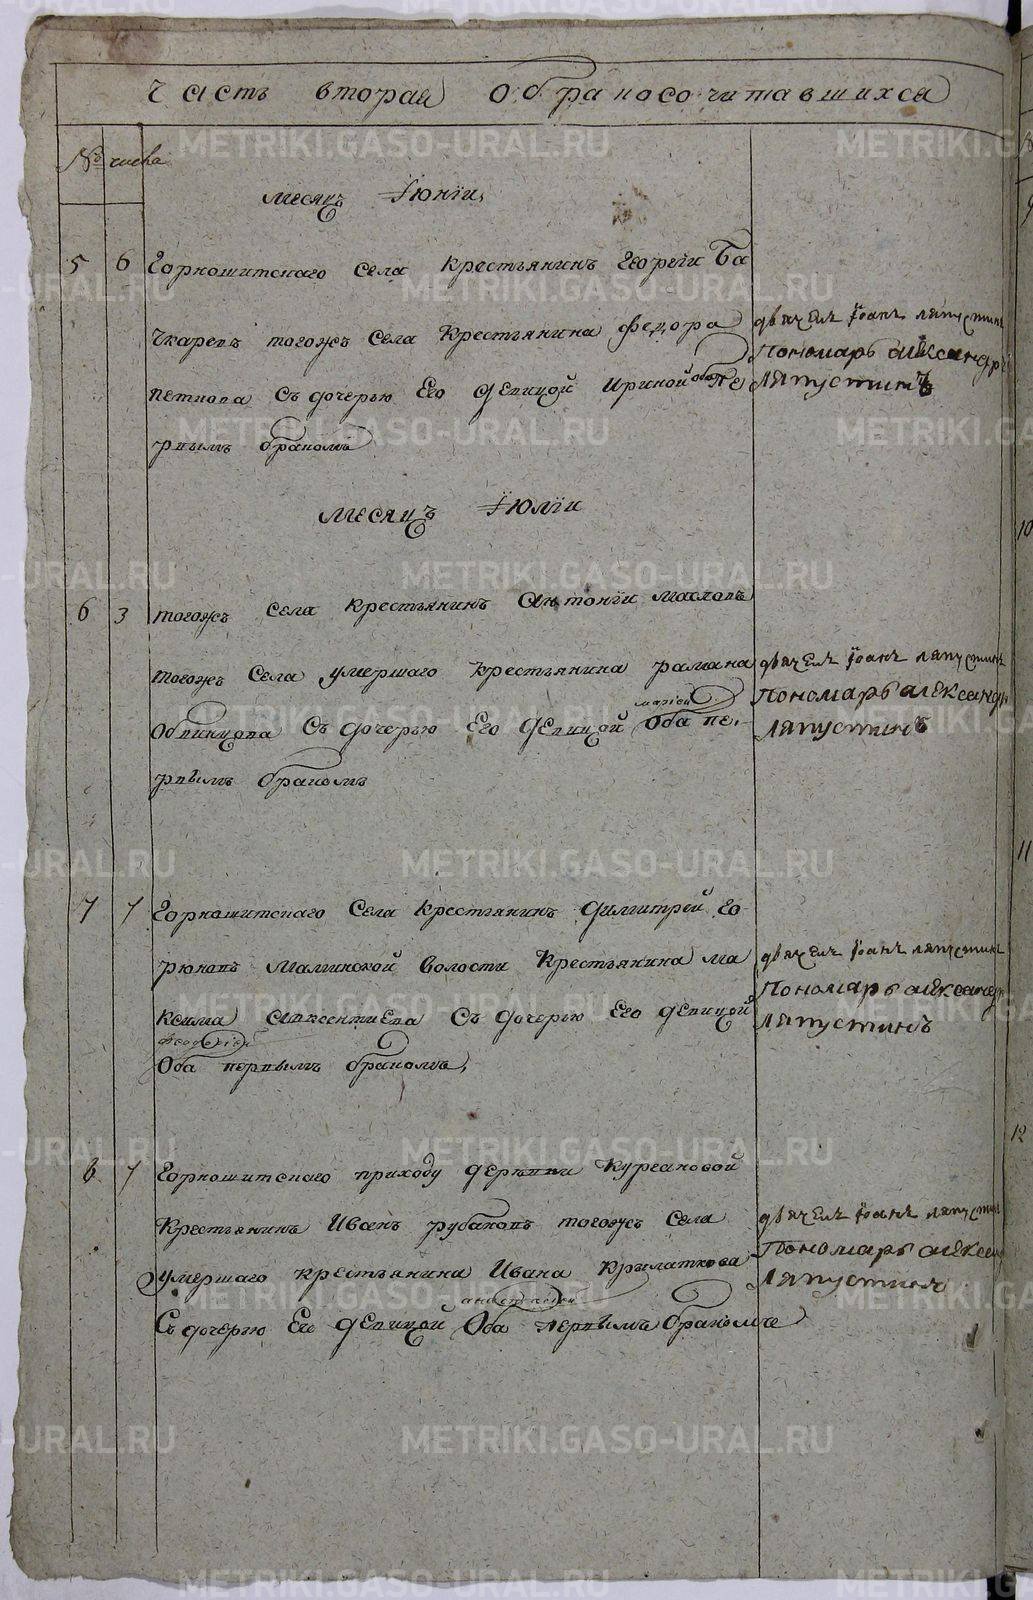 часть вторая о браносочитавшихся
№ числа
месяцъ Іюніи,
5 6 Горношитскаго села крестьянинъ Георгіи Ба
чкаревъ тогожъ села крестьянина федора
петнова съ дочерью Его Девицой Ириной оба Пе
рвымъ бракомъ
двячекъ Іоанъ ляпустинъ
Пономарь александръ
Ляпустинъ
месяцъ Іюліи
6 3 тогожъ села крестьянинъ антоніи масловъ
тогожъ села умершаго крестьянина рамана
Обвинцова съ дочерью Его Девицой маріей Оба пе,
рвымъ бракомъ
двячекъ Іоанъ ляпустинъ
Пономарь александръ
Ляпустинъ
7 7 Горношитскаго Села крестьянинъ Димитрей Го
рюновъ Маминской волости Крестьянина ма
ксима авксентиева съ дочерью его девицой
феодосіей
Оба первымъ бракомъ,
двячекъ Іоанъ ляпустинъ
Пономарь александръ
Ляпустинъ
8 7 Горношитскаго приходу деревни Кургановой
Крестьянинъ Иванъ рубаковъ тогожъ села
умершаго крестьянина Ивана Крылаткова
Съ дочерью Ево Девицой анастасіей Оба первымъ бракомъ
двячекъ Іоанъ ляпустинъ
Пономарь
Ляпустинъ
10
11
12
METRIKI.GASO-URAL.RU